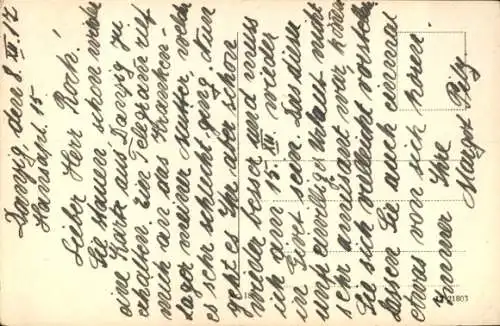 Danzig den 8. III. 12
Hansapl. 15
Lieber Herr Roch!
Sie staunen schon wieder
eine Karte aus Danzig zu
erhalten. Ein Telegramm rief
mich an das Kranken-
lager meiner Mutter, welcher
es sehr schlecht ging, nun
geht es Ihr aber schon
wieder besser und muss
ich am 15. III. wieder
in sein. Dass diese
unfreiwillige Urlaub nicht
sehr amüsant war, können
Sie sich vielleicht vorstellen.
Lassen Sie auch einmal
etwas von sich hören.
Immer Ihre
Margot
18
21803